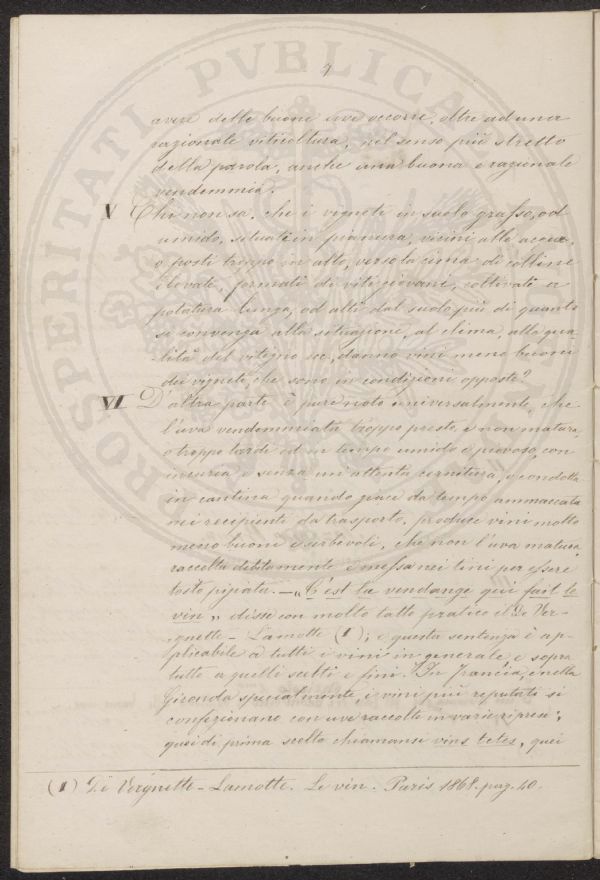 4
avere delle buone uve occorre, oltre ad una
razionale viticoltura, nel senso più stretto
della parola, anche una buona e razionale
vendemmia.
V Chi non sa, che i vigneti in suolo grasso, od
umido, situati in pianura, vicini alle acque,
o posti troppo in alto, verso la cima di colline
elevate, formati di viti giovani, coltivati a
potatura lunga, od alti dal suolo più di quanto
si convenga alla situazione, al clima, alla qua-
lità del vitigno ecc, danno vini meno buoni
dei vigneti, che sono in condizioni opposte?
VI D'altra parte è pure noto universalmente, che
l'uva vendemmiata troppo presto, e non matura,
o troppo tardi od in tempo umido e piovoso, con
incuria e senza un'attenta cernitura, e condotta
in cantina quando giace da tempo ammaccata
nei recipienti da trasporto, produce vini molto
meno buoni e serbevoli, che non l'uva matura
raccolta debitamente e messa nei tini per essere
tosto pigiata. — „C'est la vendange qui fait le
vin„ disse con molto tatto pratico il De Ver-
gnette - Lamotte (1); e questa sentenza è ap-
plicabile a tutti i vini in generale e sopra
tutto a quelli scelti e fini. In Francia, e nella
Gironda specialmente, i vini più reputati si
confezionano con uve raccolte in varie riprese;
quei di prima scelta chiamansi vins tetes, quei
(1) De Vergnette - Lamotte. Le vin. Paris 1868. pag. 40.
PROSPERITATI PVBLICAE